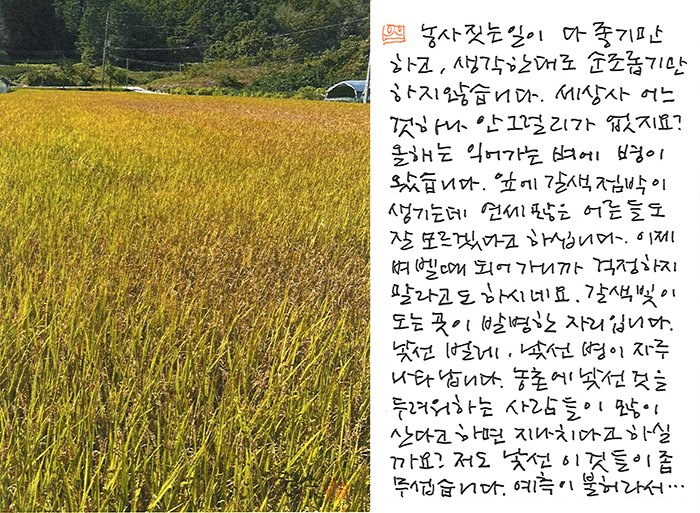 농사짓는일이 다 좋기만
하고, 생각한대로 순조롭기만
하지않습니다. 세상사 어느
것하나 안그럴리가 없지요?
올해는 익어가는 벼에 병이
왔습니다. 잎에 갈색점박이
생기는데 연세 많은 어른들도
잘 모르겠다고 하십니다. 이제
벼 벨때 되어가니까 걱정하지
말라고도 하시네요. 갈색빛이
도는 곳이 발병한 자리입니다.
낯선 벌레, 낯선 병이 자주
나타납니다. 농촌에 낯선 것을
두려워하는 사람들이 많이
산다고하면 지나치다고 하실
까요? 저도 낯선 이것들이 좀
무섭습니다. 예측이 불허라서…